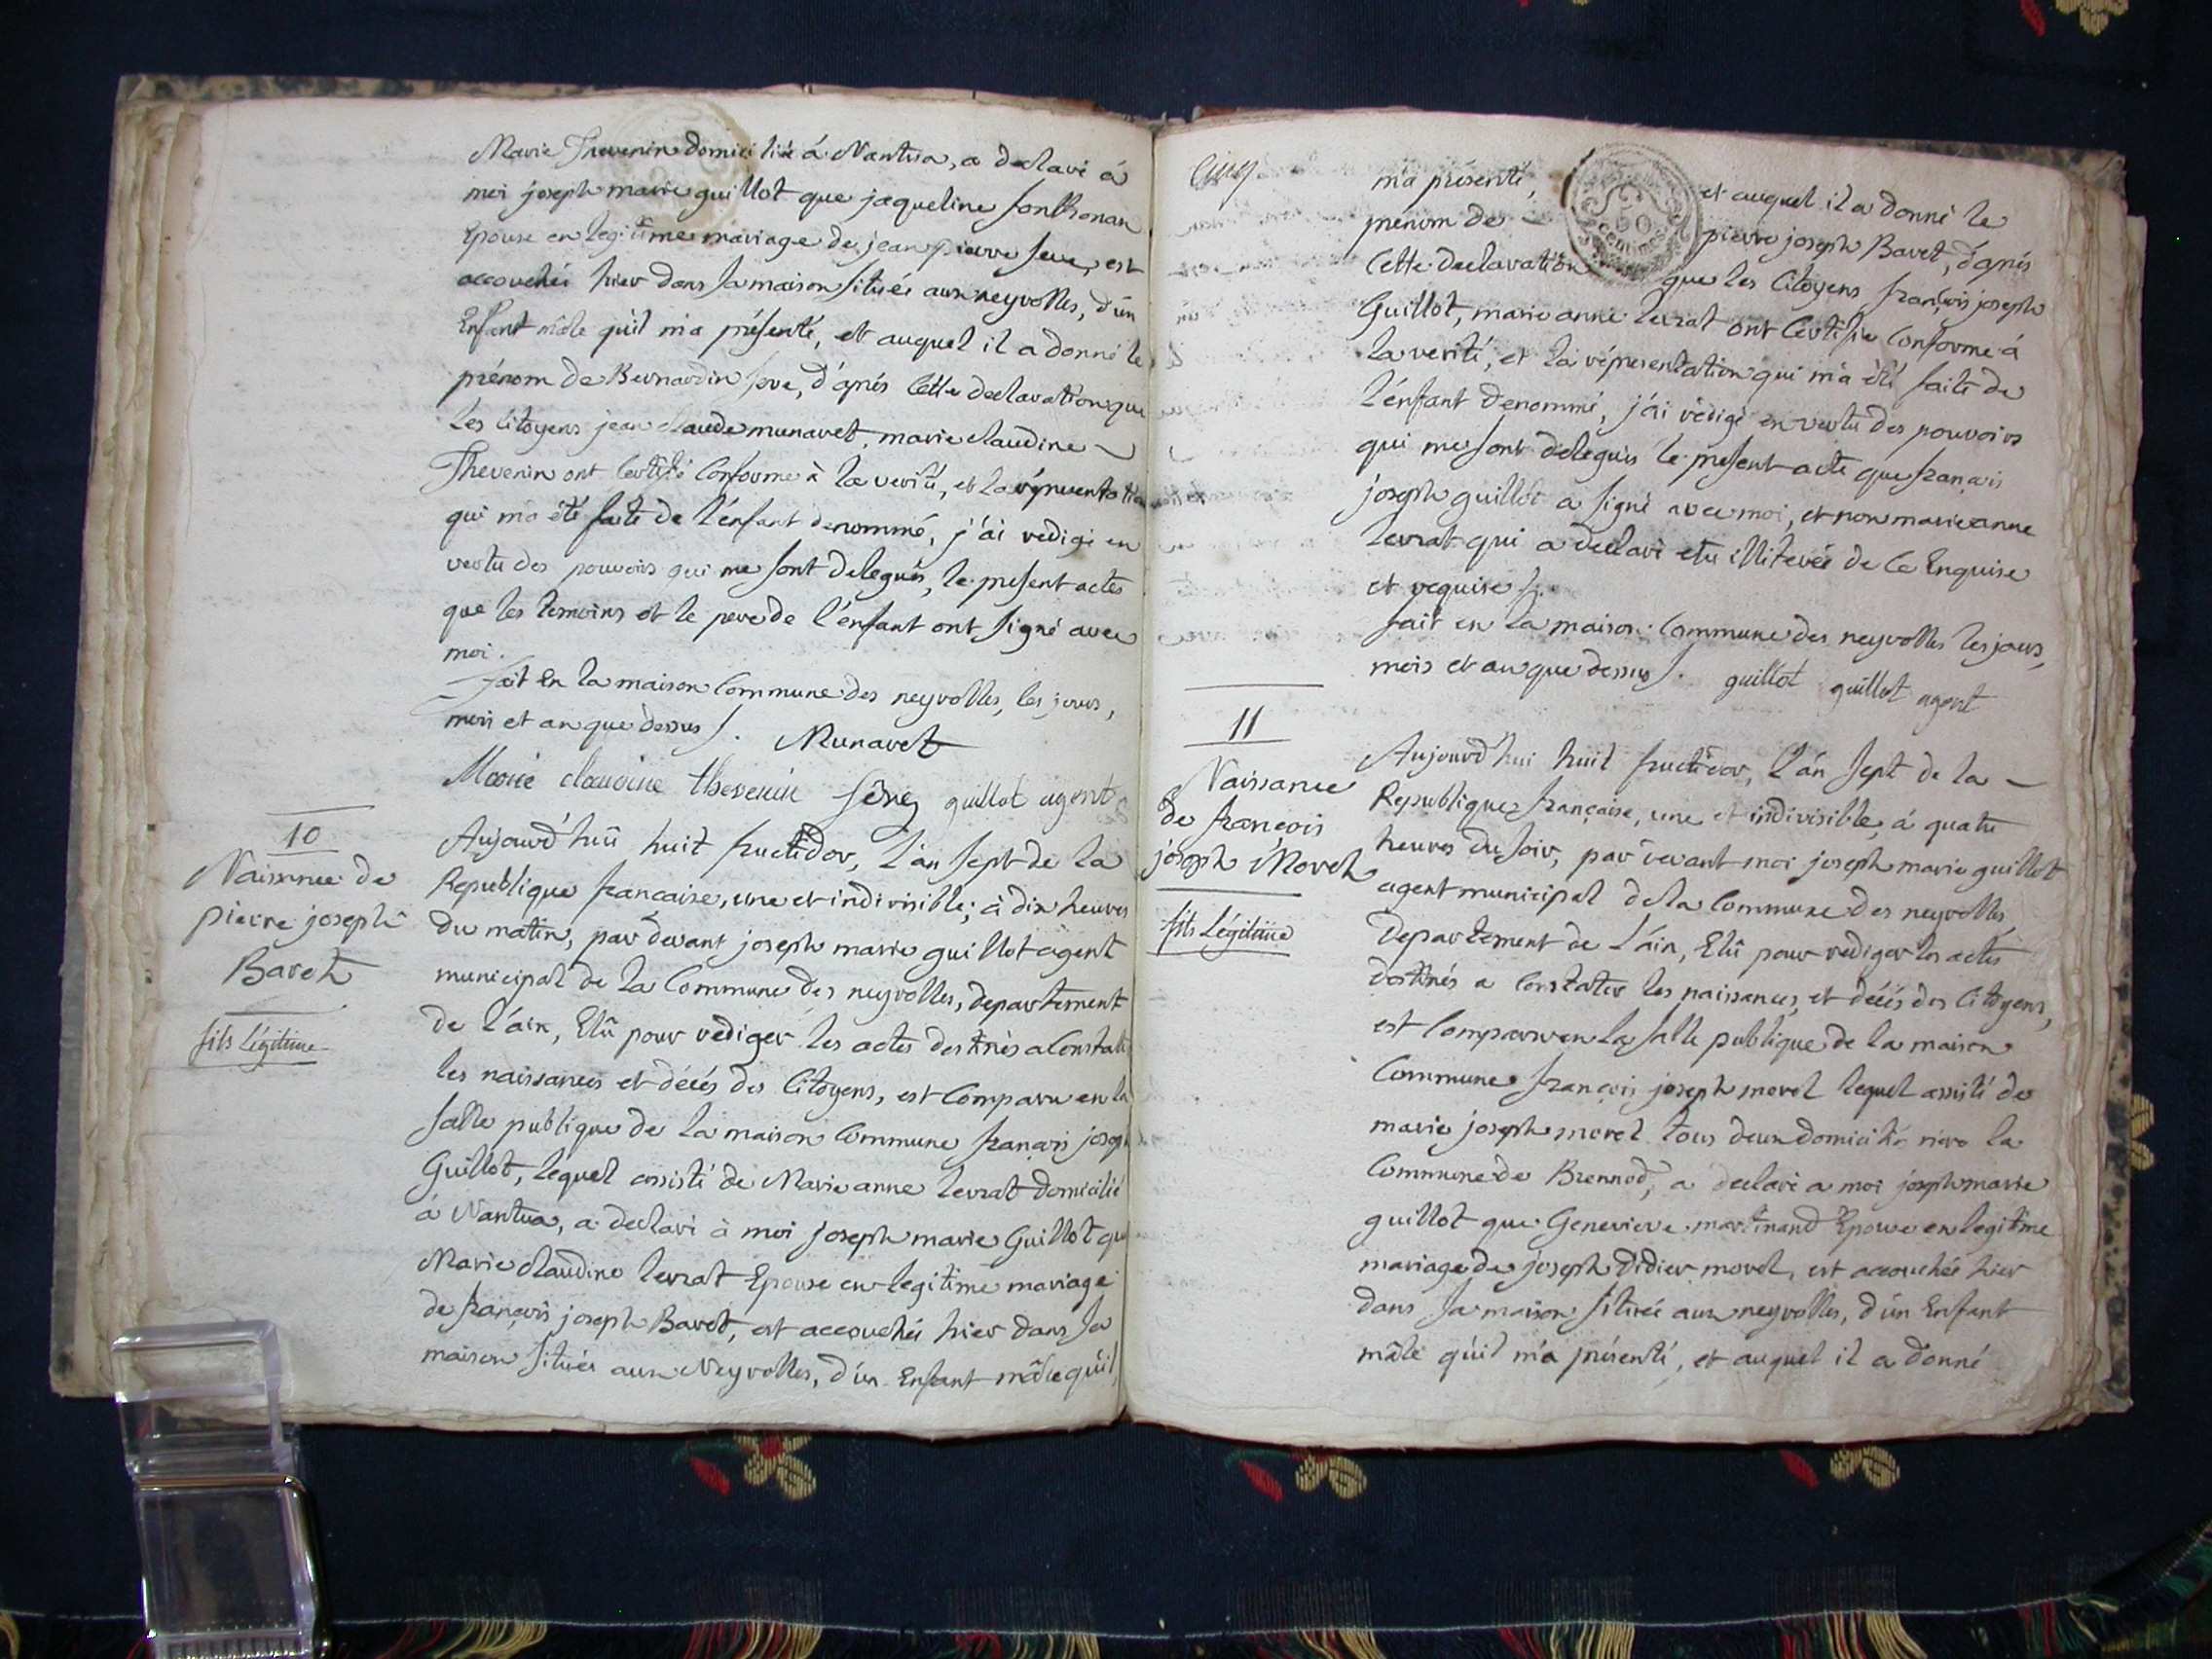 Marie Thevenin domiciliée á Nantua, a declaré á
moi joseph marie guillot que jaqueline fonthonax
Epouse en legitime mariage de jean pierre seve, est
accouchée hier dans sa maison située aux neyrolles, d'un
Enfant mâle qu'il m'a présenté, et auquel il a donné le
prénom de Bernardin seve, d'aprés Cette declaration que
les Citoyens jean claude munaret, marie claudine
Thevenin ont Certifié Conforme à la verité, et la réprésentation
qui m'a été faite de l'énfant denommé, j'ai redigé en
vertu des pouvoirs qui me sont delegués, le present actes
que les temoins et le pere de l'énfant ont signé avec
moi.
fait En la maison Commune des neyrolles, les jours,
mois et an que dessus /. Munaret
Marie claudine thevenin séve guillot agent
10
Naissance de
pierre joseph
Baret
fils Légitime
Aujourd'hui huit fructidor, l'an sept de la
Republique francaise, une et indivisible; à dix heures
du matin, par devant joseph marie guillot agent
municipal de la Commune des neyrolles, departement
de l'ain, Elû pour rediger les actes destinés a Constater
les naissances et décés des Citoyens, est Comparu en la
salle publique de la maison Commune françois joseph
Guillot, lequel assisté de Marie anne levrat domicilié
á Nantua, a declaré à moi joseph marie Guillot que
Marie claudine levrat Epouse en legitime mariage
de françois joseph Baret, est accouchée hier dans sa
maison située aux Neyrolles, d'un Enfant mâle qu'il
Cinq
m'a présenté, et auquel il a donné le
prénom de pierre joseph Baret, d'aprés
Cette declaration que les Citoyens françois joseph
50
centimes
Guillot, marie anne levrat ont Certifié Conforme á
la verité, et la réprésentation qui m'a été faite de
l'énfant denommé, j'ai redigé en vertu des pouvoirs
qui me sont delegués le present acte que françois
joseph guillot a signé avec moi, et non marie anne
levrat qui a declaré etre illiterée de Ce Enquise
et requise /.
fait en la maison Commune des neyrolles les jours,
mois et an que dessus /. guillot guillot agent
11
Naissance
de françois
joseph Morel
fils Légitime
Aujourd'hui huit fructidor, l'an sept de la
Republique française, une et indivisible, á quatre
heures du soir, par devant moi joseph marie guillot
agent municipal de la Commune des neyrolles,
Departement de l'ain, Elû pour rediger les actes
destinés a Constater les naissances, et décés des Citoyens,
est Comparu en la salle publique de la maison
Commune françois joseph morel lequel assisté de
marie joseph morel tous deux domicilié riere la
Commune de Brennod, a declaré a moi joseph marie
guillot que Genevieve martinand Epouse en legitime
mariage de joseph Didier morel, est accouchée hier
dans sa maison située aux neyrolles, d'un Enfant
mâle qu'il m'a présenté, et auquel il a donné